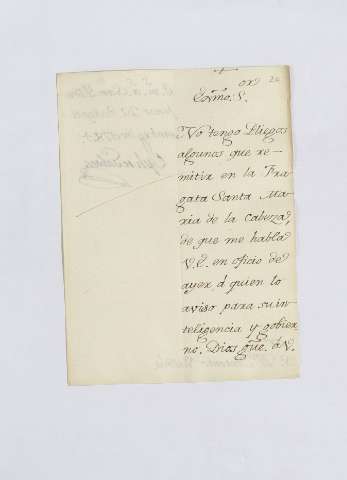 Exmo. S.
No tengo Pliegos
algunos que re-
mitir en la Fra
gata Santa Ma
ria de la Cabeza,
de que me habla
V.E. en oficio de
ayer, á quien lo
aviso para su in
teligencia y gobier
no. Dios gue. á V.